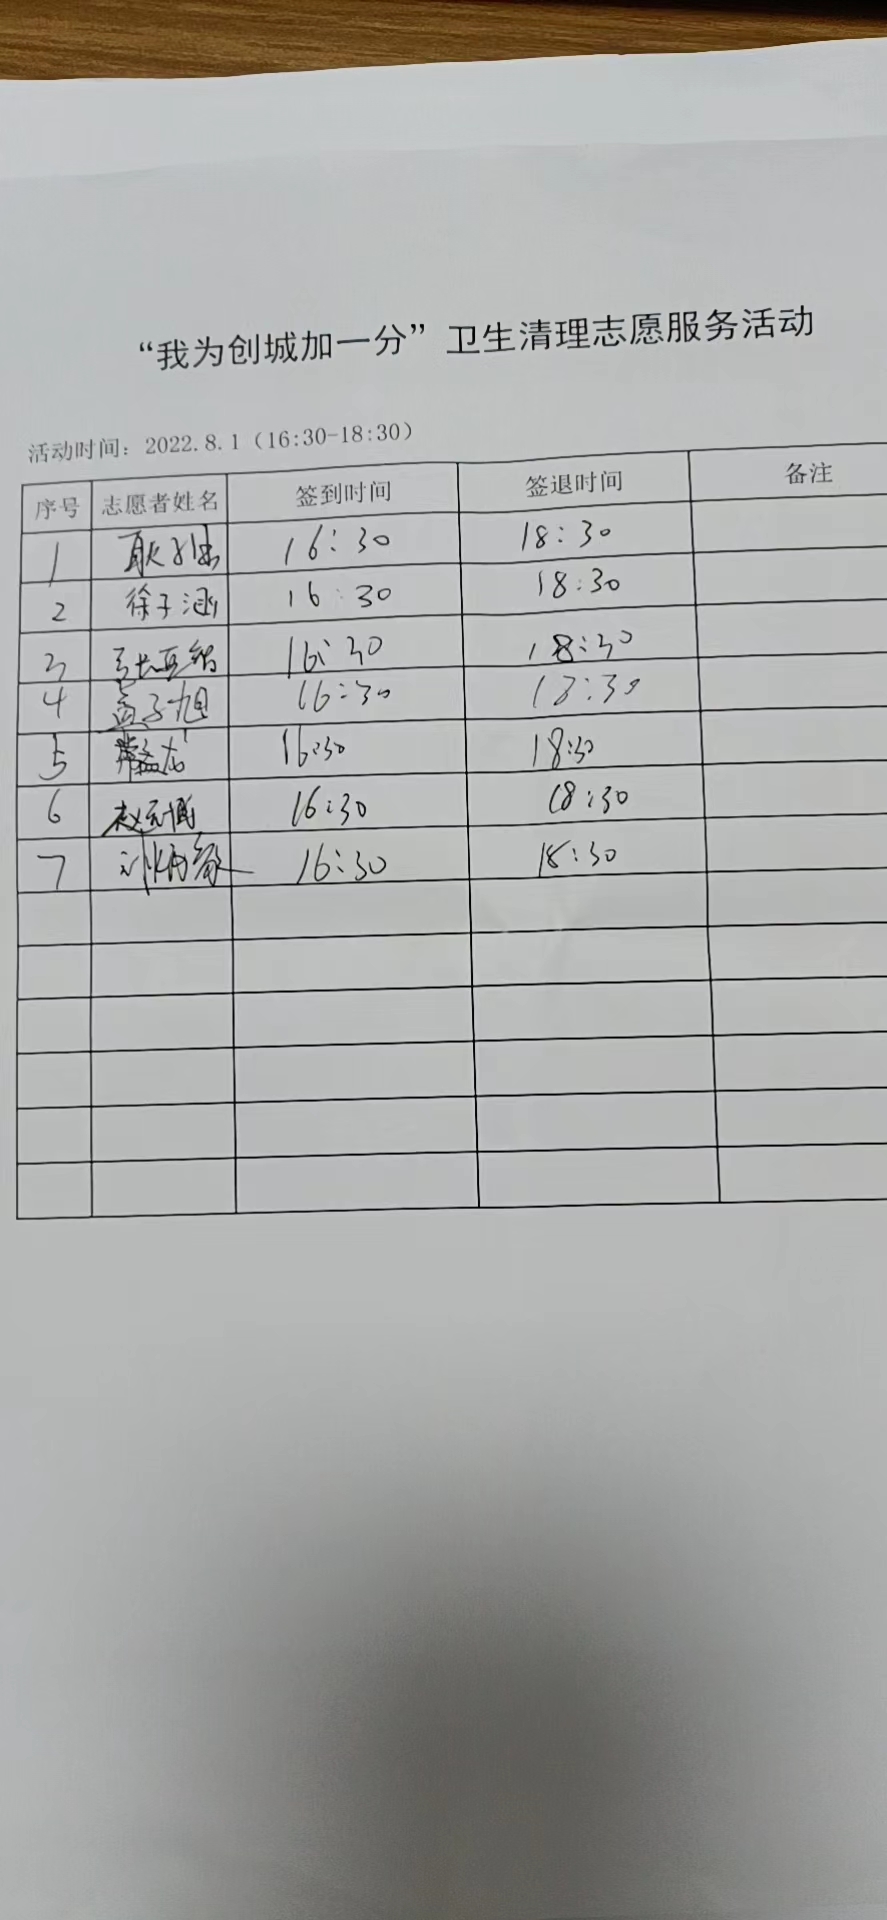 “我为创城加一分”卫生清理志愿服务活动
活动时间：2022.8.1（16:30-18:30）
序号 志愿者姓名 签到时间 签退时间 备注
1 耿 16:30 18:30
2 徐子涵 16:30 18:30
3 16:30 18:30
4 孟子旭 16:30 18:30
5 16:30 18:30
6 赵 16:30 18:30
7 刘炳 16:30 18:30